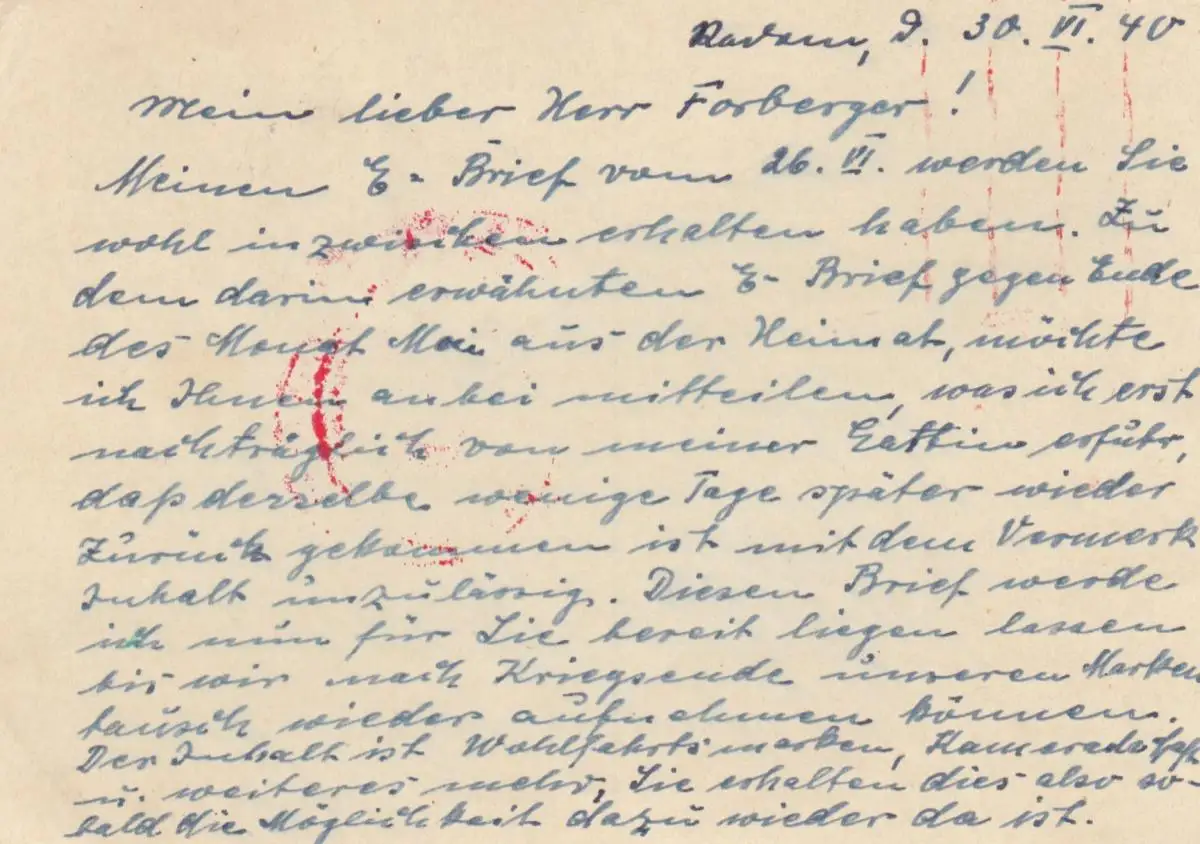 Radom, d. 30. VI. 40
Mein lieber Herr Forberger!
Meinen E-Brief vom 26. VI. werden Sie
wohl inzwischen erhalten haben. Zu
dem darin erwähnten E-Brief gegen Ende
des Monat Mai aus der Heimat, möchte
ich Ihnen anbei mitteilen, was ich erst
nachträglich von meiner Gattin erfuhr,
daß derselbe wenige Tage später wieder
zurück gekommen ist mit dem Vermerk
Inhalt unzulässig. Diesen Brief werde
ich nun für Sie bereit liegen lassen
bis wir nach Kriegsende unseren Marken
tausch wieder aufnehmen können.
Der Inhalt ist Wohlfahrtsmarken,
u. weiteres mehr, Sie erhalten dies also so-
bald die Möglichkeit dazu wieder da ist.